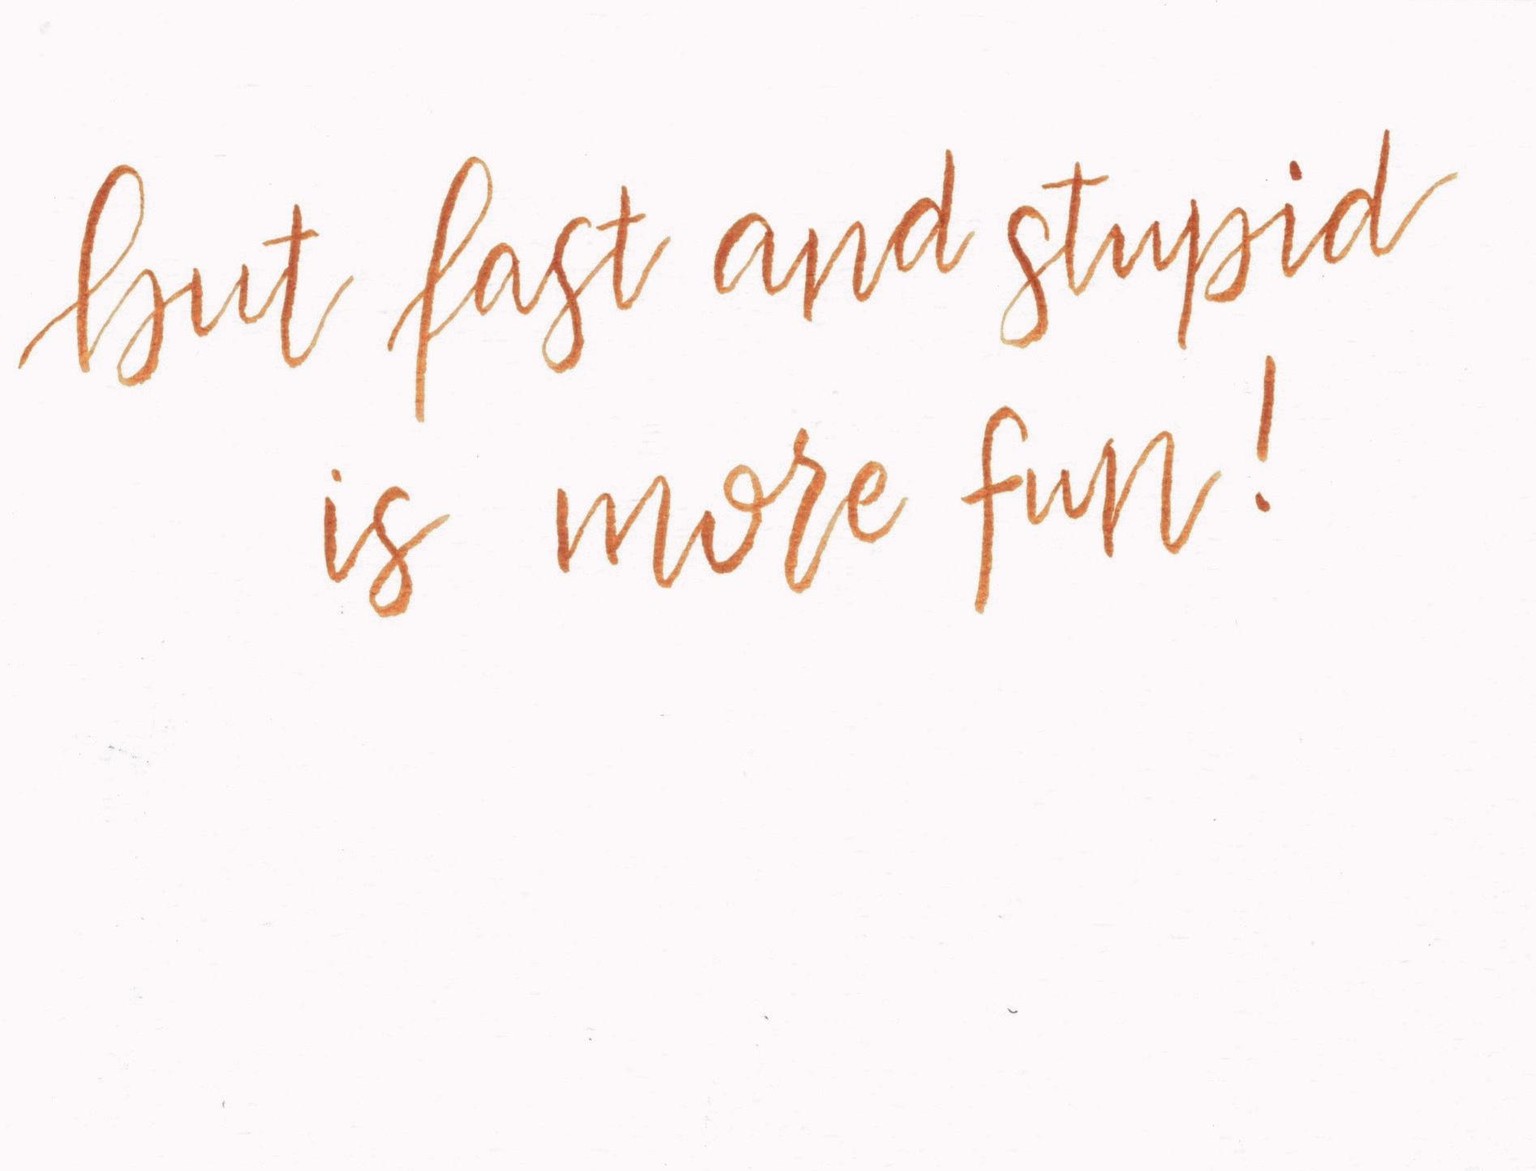 but fast and stupid
is more fun!